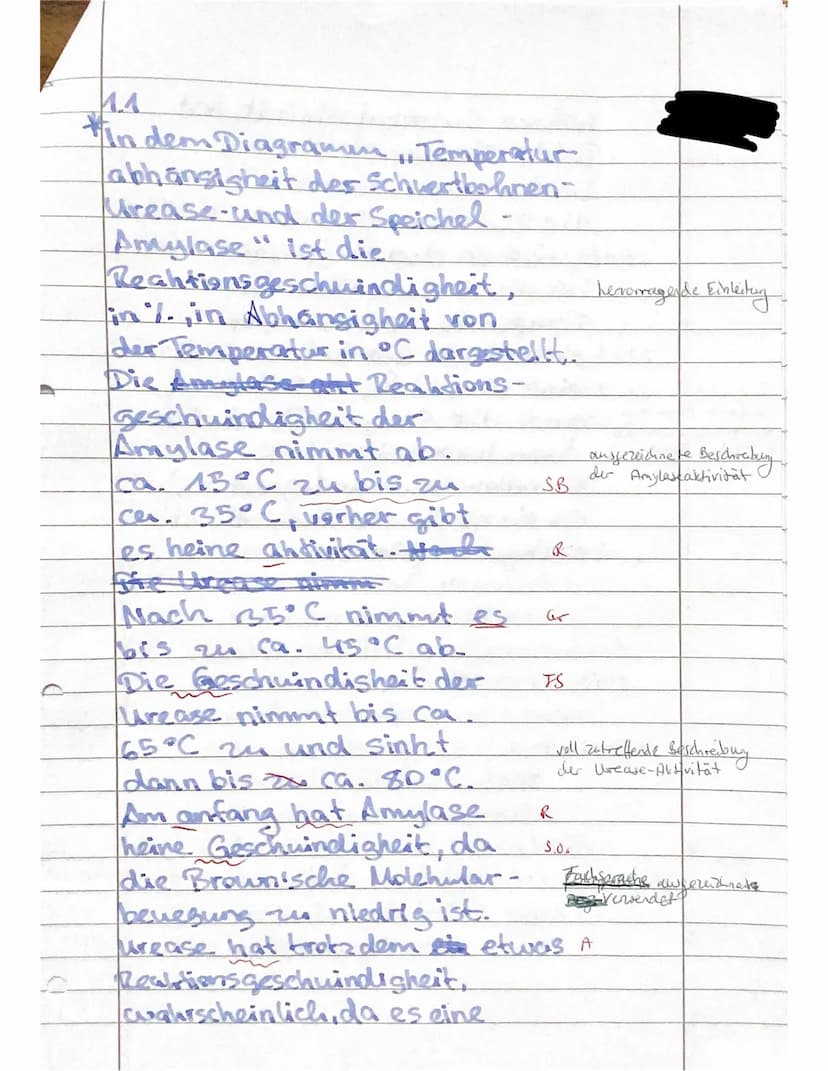 1.1
*In dem Diagramm „Temperatur-
abhängigkeit der Schwertbohnen-
Urease-und der Speichel-
Amylase" ist die
Reaktionsgeschwindigkeit,
hervorragende Einleitung
in %, in Abhängigkeit von
der Temperatur in °C dargestellt.
Die Amylase akt Reaktions-
geschwindigkeit der
Amylase nimmt ab.
ausgezeichnete Beschreibung
der Amylaseaktivität
ca. 15°C zu bis zu
SB
ca. 35°C, vorher gibt
es keine aktivität.
R
Die Urease nimm
Nach 35°C nimmt es
Gr
bis zu ca. 45°C ab.
Die Geschwindigkeit der
FS
Urease nimmt bis ca.
65°C zu und sinkt
voll zutreffende Beschreibung
der Urease-Aktivität
dann bis zu ca. 80°C.
Am anfang hat Amylase
R
keine Geschwindigkeit, da
s.o.
die Brown'sche Molekular-
Fachsprache ausgezeichnet
verwendet
bewegung zu niedrig ist.
Urease hat trotzdem ein etwas
A
Reaktionsgeschwindigkeit,
wahrscheinlich, da es eine